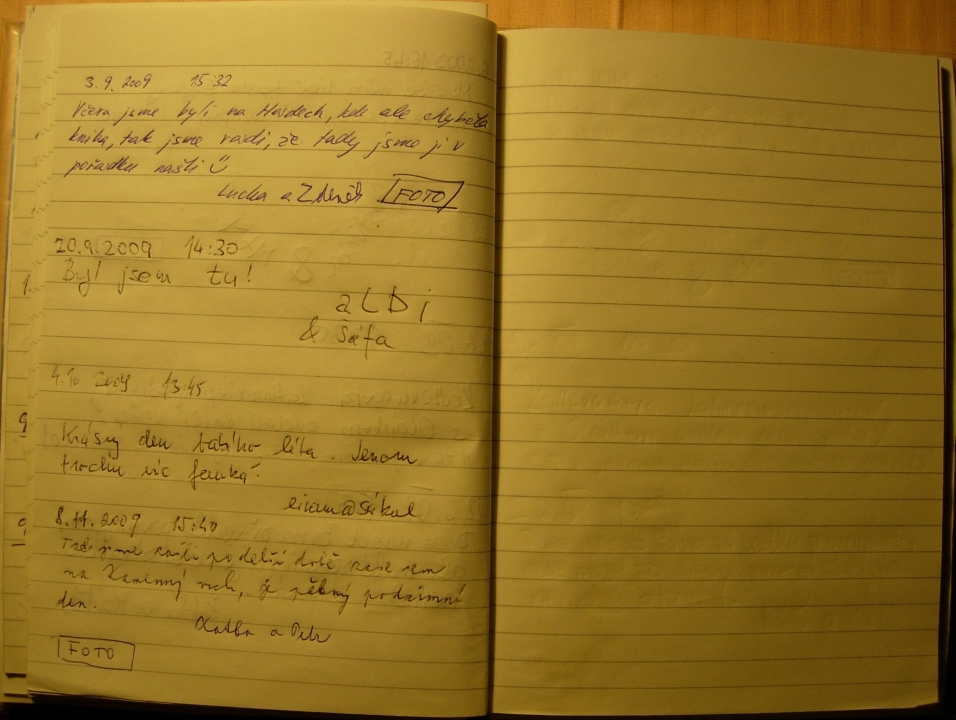 3.9.2009 15:32
Včera jsme byli na Hádech, kde ale chyběla
kniha, tak jsme rádi, že tady jsme ji v
pořádku našli
Lucka a Zdeněk FOTO
20.9.2009 14:30
Byl jsem tu!
aLDi
& Šáfa
4.10 2009 13:45
Krásný den babího léta. Jenom
trochu víc fouká.
8.11.2009 15:40
jsme po delší době zase sem
na Kamenný vrch, je pěkný podzimní
den.
a Petr
FOTO